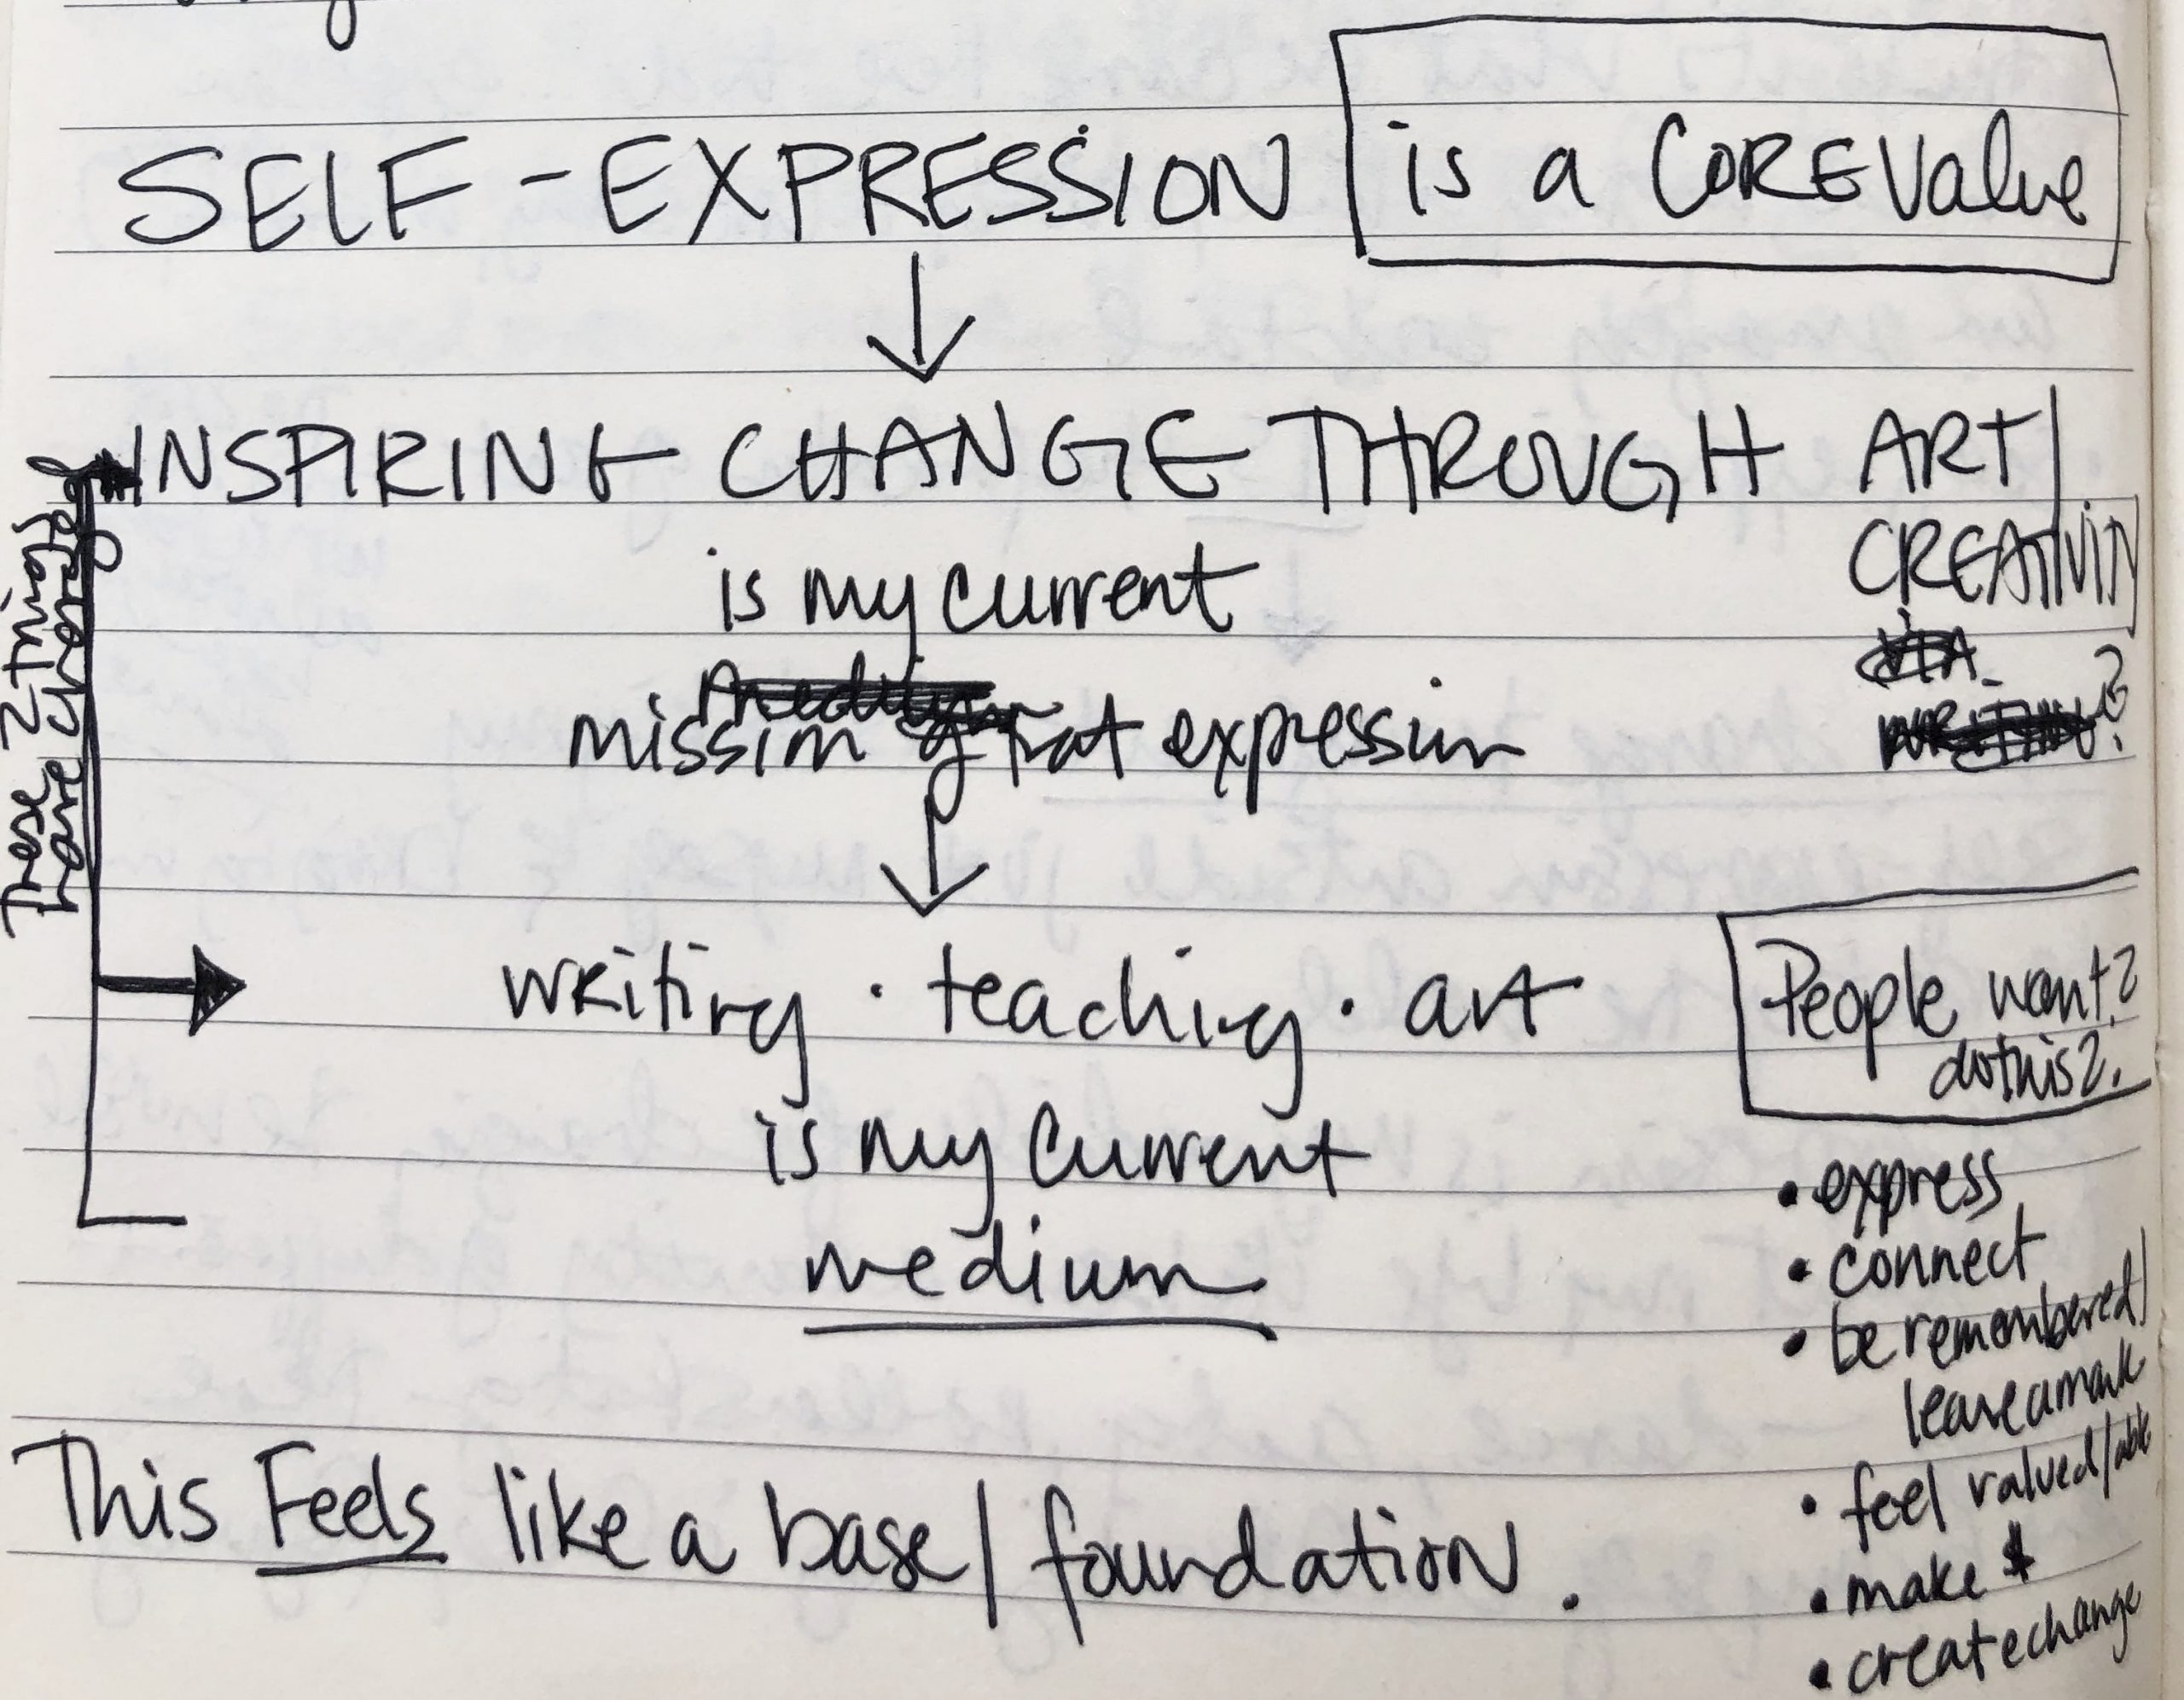 SELF-EXPRESSION is a CORE Value
INSPIRING CHANGE THROUGH ART/
CREATIVITY
is my current
VIA
mission of that expression
WRITING?
These 2 things
have changed
writing · teaching · art
is my current
medium
People want?
do this?
• express
• connect
• be remembered/
leave a mark
• feel valued/able
• make $
• create change
This Feels like a base/foundation.